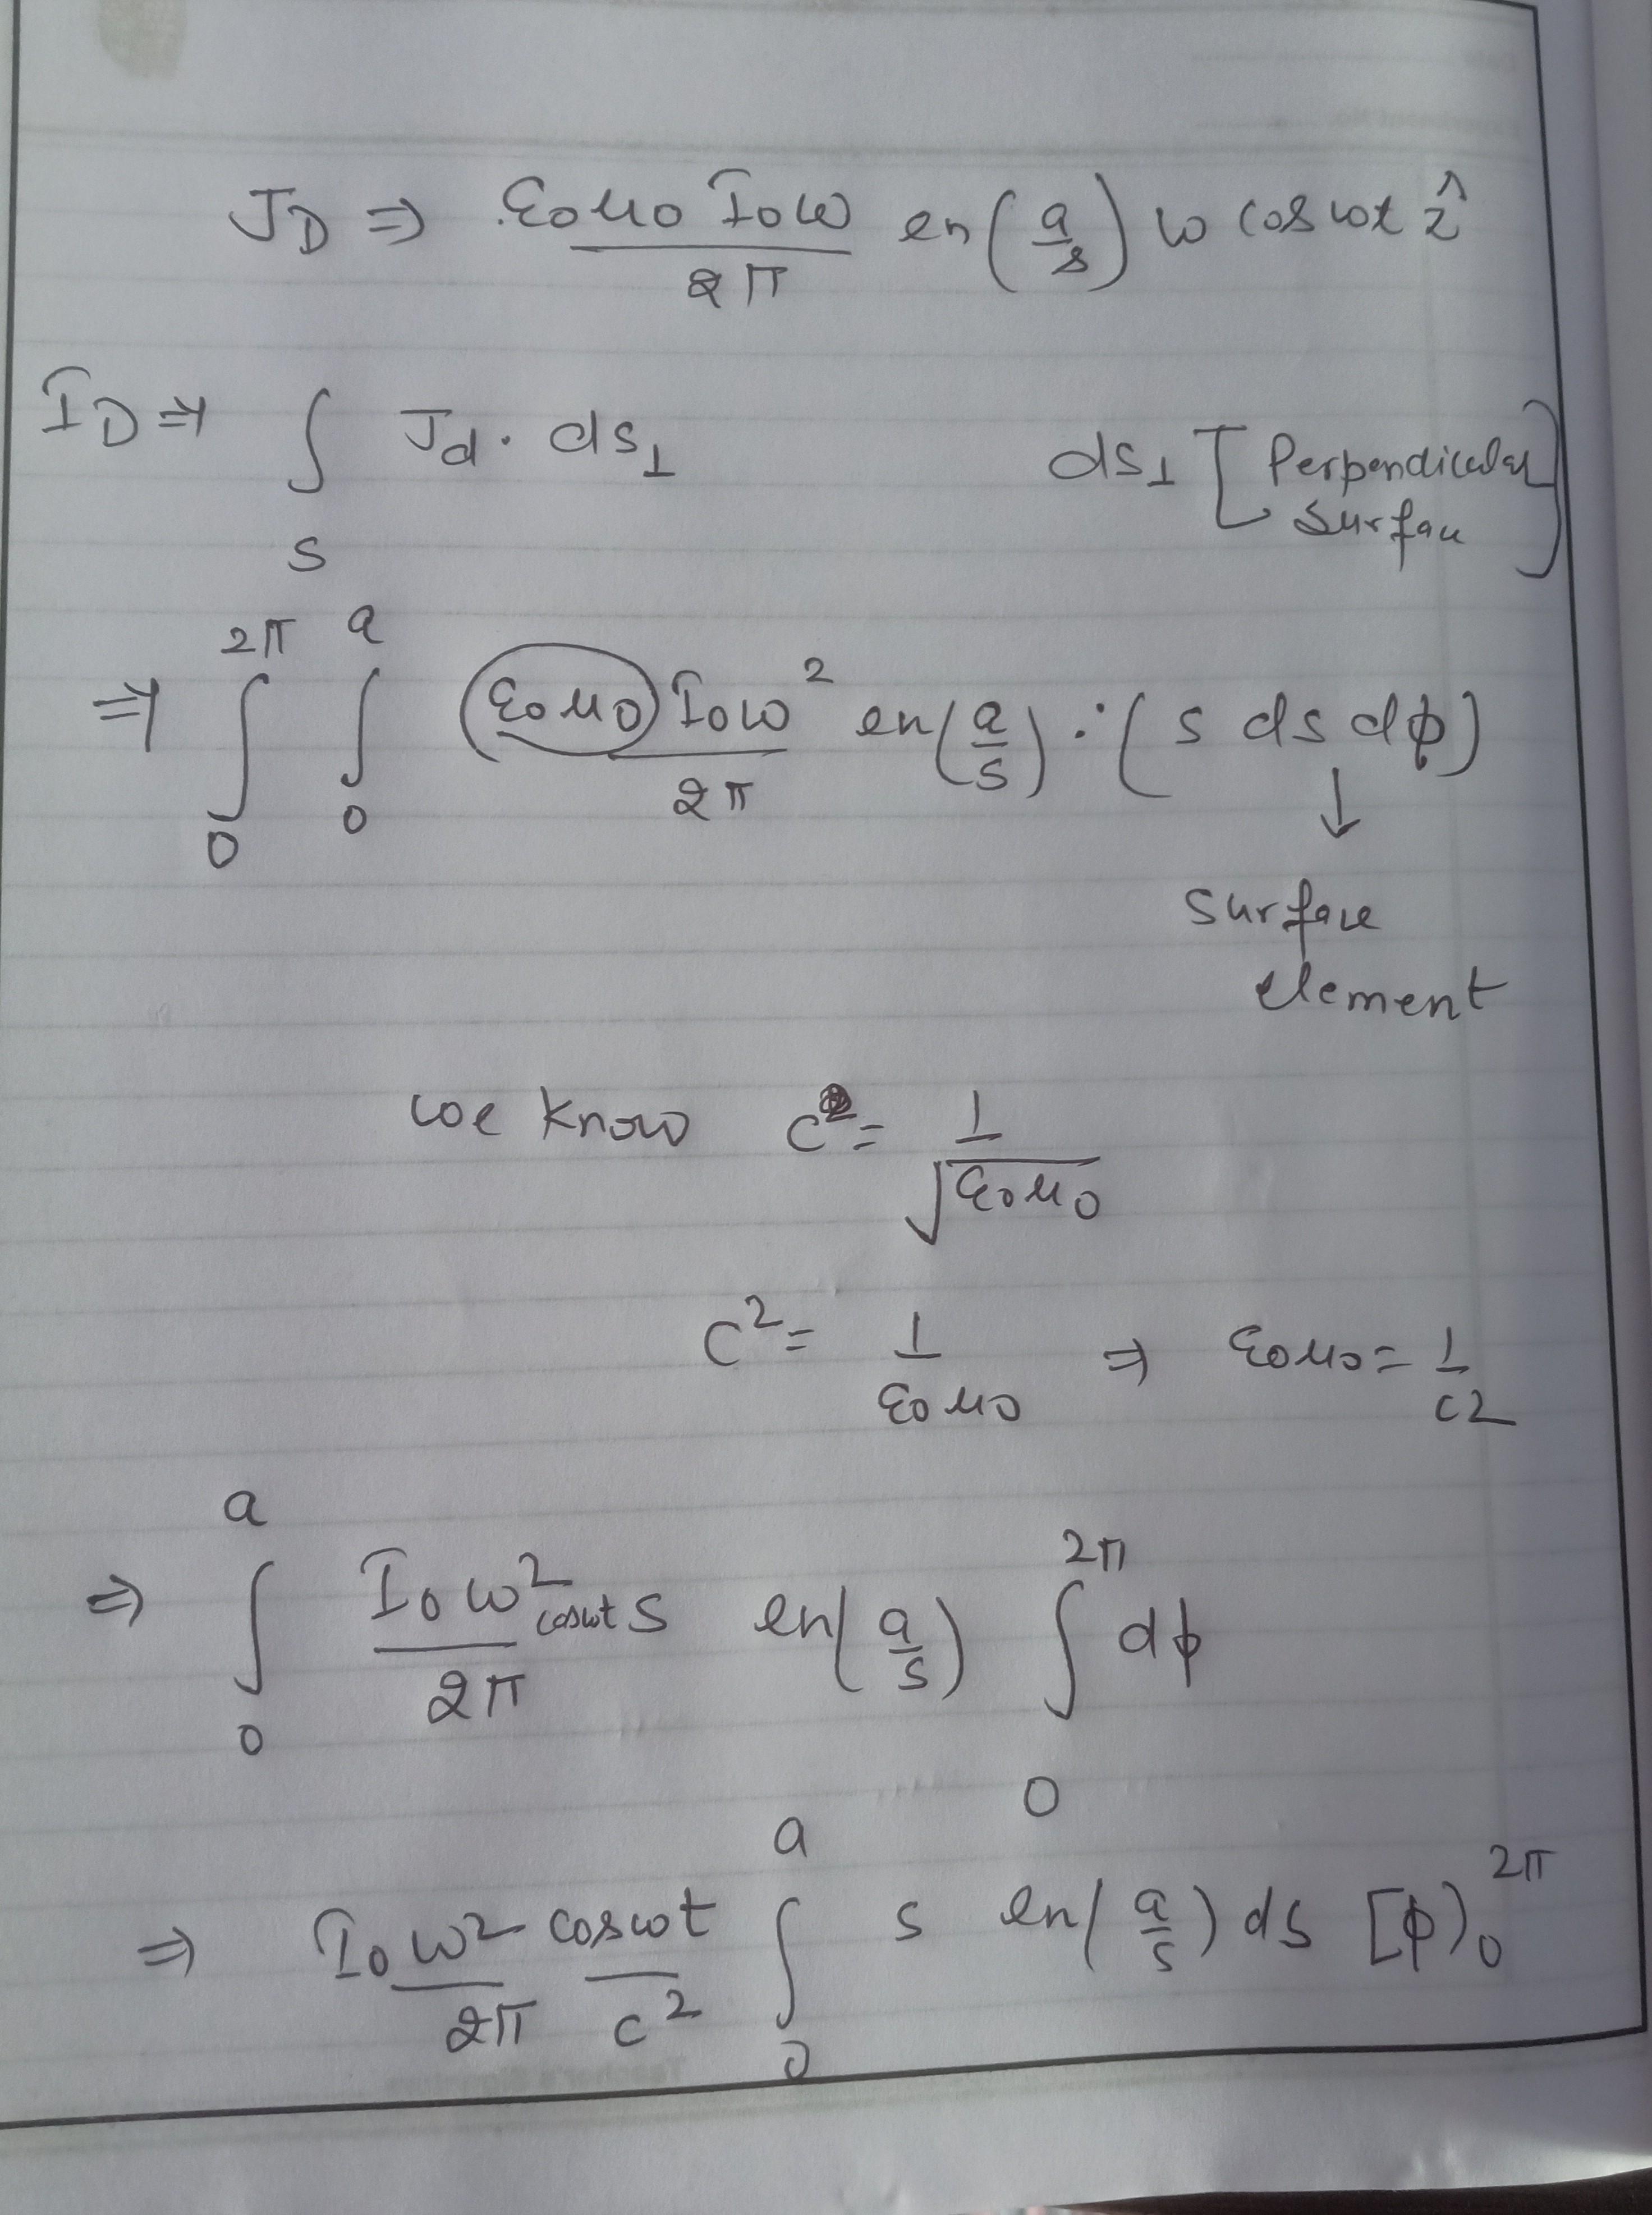 J_D ⇒ ε₀μ₀ I₀ω / 2π ln(a/s) ω cos ωt ẑ
I_D ⇒ ∫_S J_d · ds⊥    ds⊥ [Perpendicular surface]
⇒ ∫₀^2π ∫₀^a ε₀μ₀ I₀ω² / 2π ln(a/s) · (s ds dϕ)
↓
surface
element
we know c = 1/√ε₀μ₀
c² = 1/ε₀μ₀ ⇒ ε₀μ₀ = 1/c²
⇒ ∫₀^a I₀ω² cosωt s / 2π ln(a/s) ∫₀^2π dϕ
⇒ I₀ω²/2π cosωt/c² ∫₀^a s ln(a/s) ds [ϕ)₀^2π